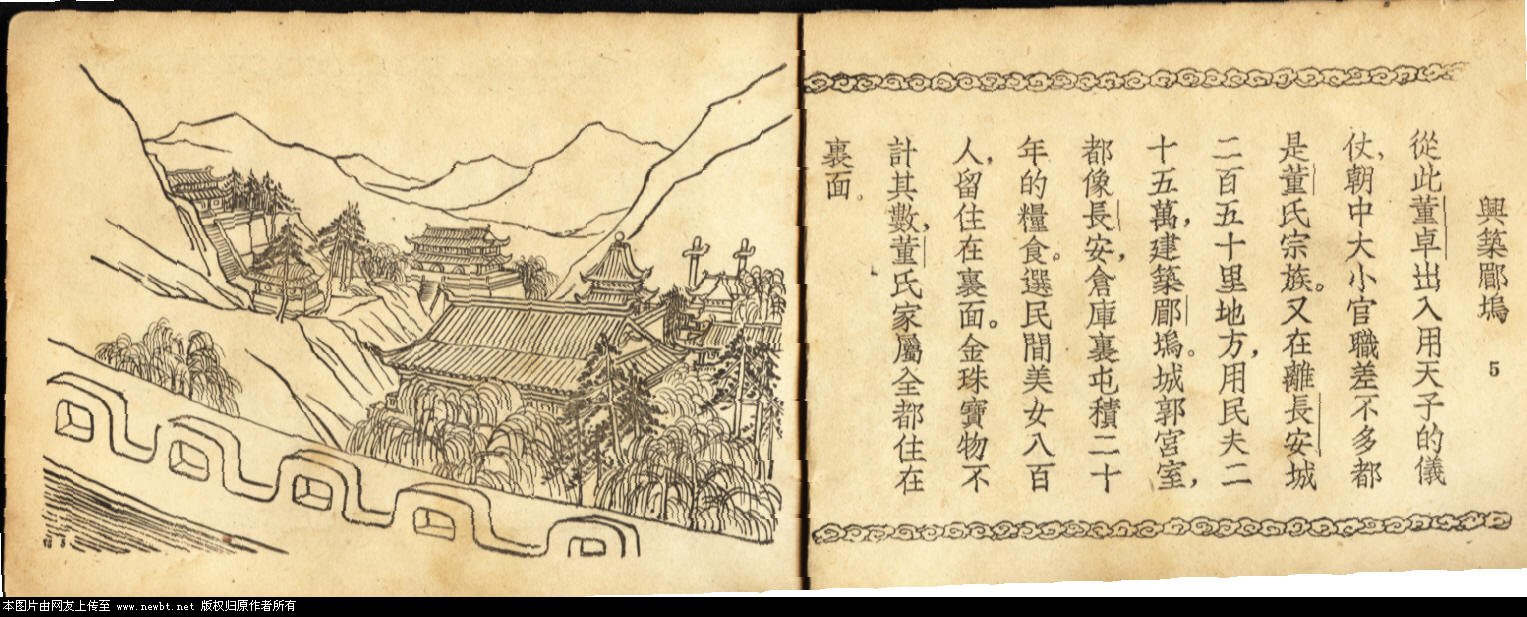 興築郿塢
5
從此董卓出入用天子的儀
仗，朝中大小官職差不多都
是董氏宗族。又在離長安城
二百五十里地方，用民夫二
十五萬，建築郿塢。城郭宮室，
都像長安，倉庫裏屯積二十
年的糧食。選民間美女八百
人，留住在裏面。金珠寶物不
計其數，董氏家屬全都住在
裏面。
本图片由网友上传至 www.newbt.net 版权归原作者所有